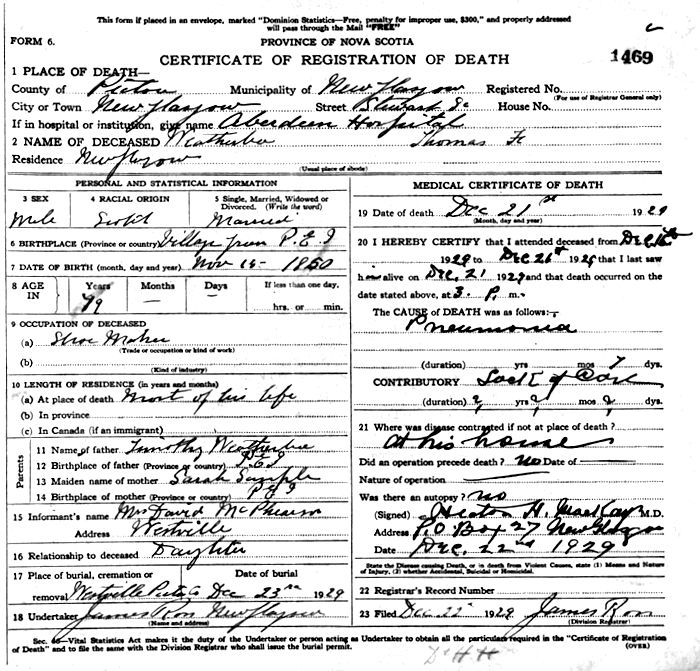 This form if placed in an envelope, marked "Dominion Statistics—Free, penalty for improper use, $300," and properly addressed
will pass through the Mail "FREE"
FORM 6. PROVINCE OF NOVA SCOTIA
CERTIFICATE OF REGISTRATION OF DEATH 1469
1 PLACE OF DEATH—
County of Pictou Municipality of New Glasgow Registered No.
(For use of Registrar General only)
City or Town New Glasgow Street House No.
If in hospital or institution, give name Aberdeen Hospital
2 NAME OF DECEASED Weatherbee Thomas
Residence New Glasgow
(Usual place of abode)
PERSONAL AND STATISTICAL INFORMATION
3 SEX 4 RACIAL ORIGIN 5 Single, Married, Widowed or Divorced. (Write the word)
Male Scotch Married
6 BIRTHPLACE (Province or country) Village from P.E.I
7 DATE OF BIRTH (month, day and year) Nov 1850
8 AGE IN Years Months Days If less than one day,
79 — — hrs. or min.
9 OCCUPATION OF DECEASED
(a) Shoe Maker
(Trade or occupation or kind of work)
(b)
(Kind of industry)
10 LENGTH OF RESIDENCE (in years and months)
(a) At place of death Most of his life
(b) In province
(c) In Canada (if an immigrant)
Parents
11 Name of father Timothy Weatherbee
12 Birthplace of father (Province or country) P.E.I
13 Maiden name of mother Sarah Semple
14 Birthplace of mother (Province or country) P.E.I
15 Informant's name Mrs David McPhearson
Address Westville
16 Relationship to deceased Daughter
17 Place of burial, cremation or removal Date of burial
Westville Pictou Co Dec 23rd 1929
18 Undertaker James Ross New Glasgow
(Name and address)
MEDICAL CERTIFICATE OF DEATH
19 Date of death Dec 21st 1929
(Month, day and year)
20 I HEREBY CERTIFY that I attended deceased from Dec 16th
1929 to Dec 21st 1929 that I last saw
him alive on Dec. 21 1929 and that death occurred on the
date stated above, at 3 P. m.
The CAUSE of DEATH was as follows:—
Pneumonia
(duration) yrs mos 7 dys.
CONTRIBUTORY Lack of Care
(duration) ? yrs ? mos ? dys.
21 Where was disease contracted if not at place of death?
At his house
Did an operation precede death? no Date of
Nature of operation
Was there an autopsy? no
(Signed) H. MacKay M.D.
Address P.O Box 27 New Glasgow
Date Dec. 22nd 1929
State the Disease causing Death, or in death from Violent Causes, state (1) Means and Nature of Injury, (2) whether Accidental, Suicidal or Homicidal.
22 Registrar's Record Number
23 Filed Dec 22 1929 James Ross
(Division Registrar)
Sec. 46—Vital Statistics Act makes it the duty of the Undertaker or person acting as Undertaker to obtain all the particulars required in the "Certificate of Registration
of Death" and to file the same with the Division Registrar who shall issue the burial permit. (OVER)